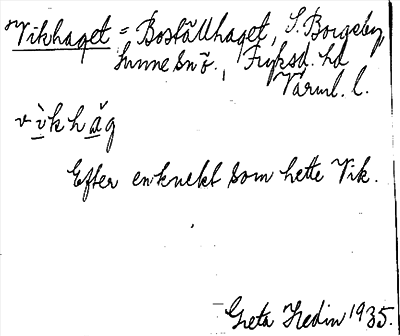 Vikhaget = Boställhaget, S. Borgeby,
Sunne sn ö., Fryksd. hd
Värml. l.
vìkhāg
Efter en knekt som hette Vik.
Greta Hedin 1935.